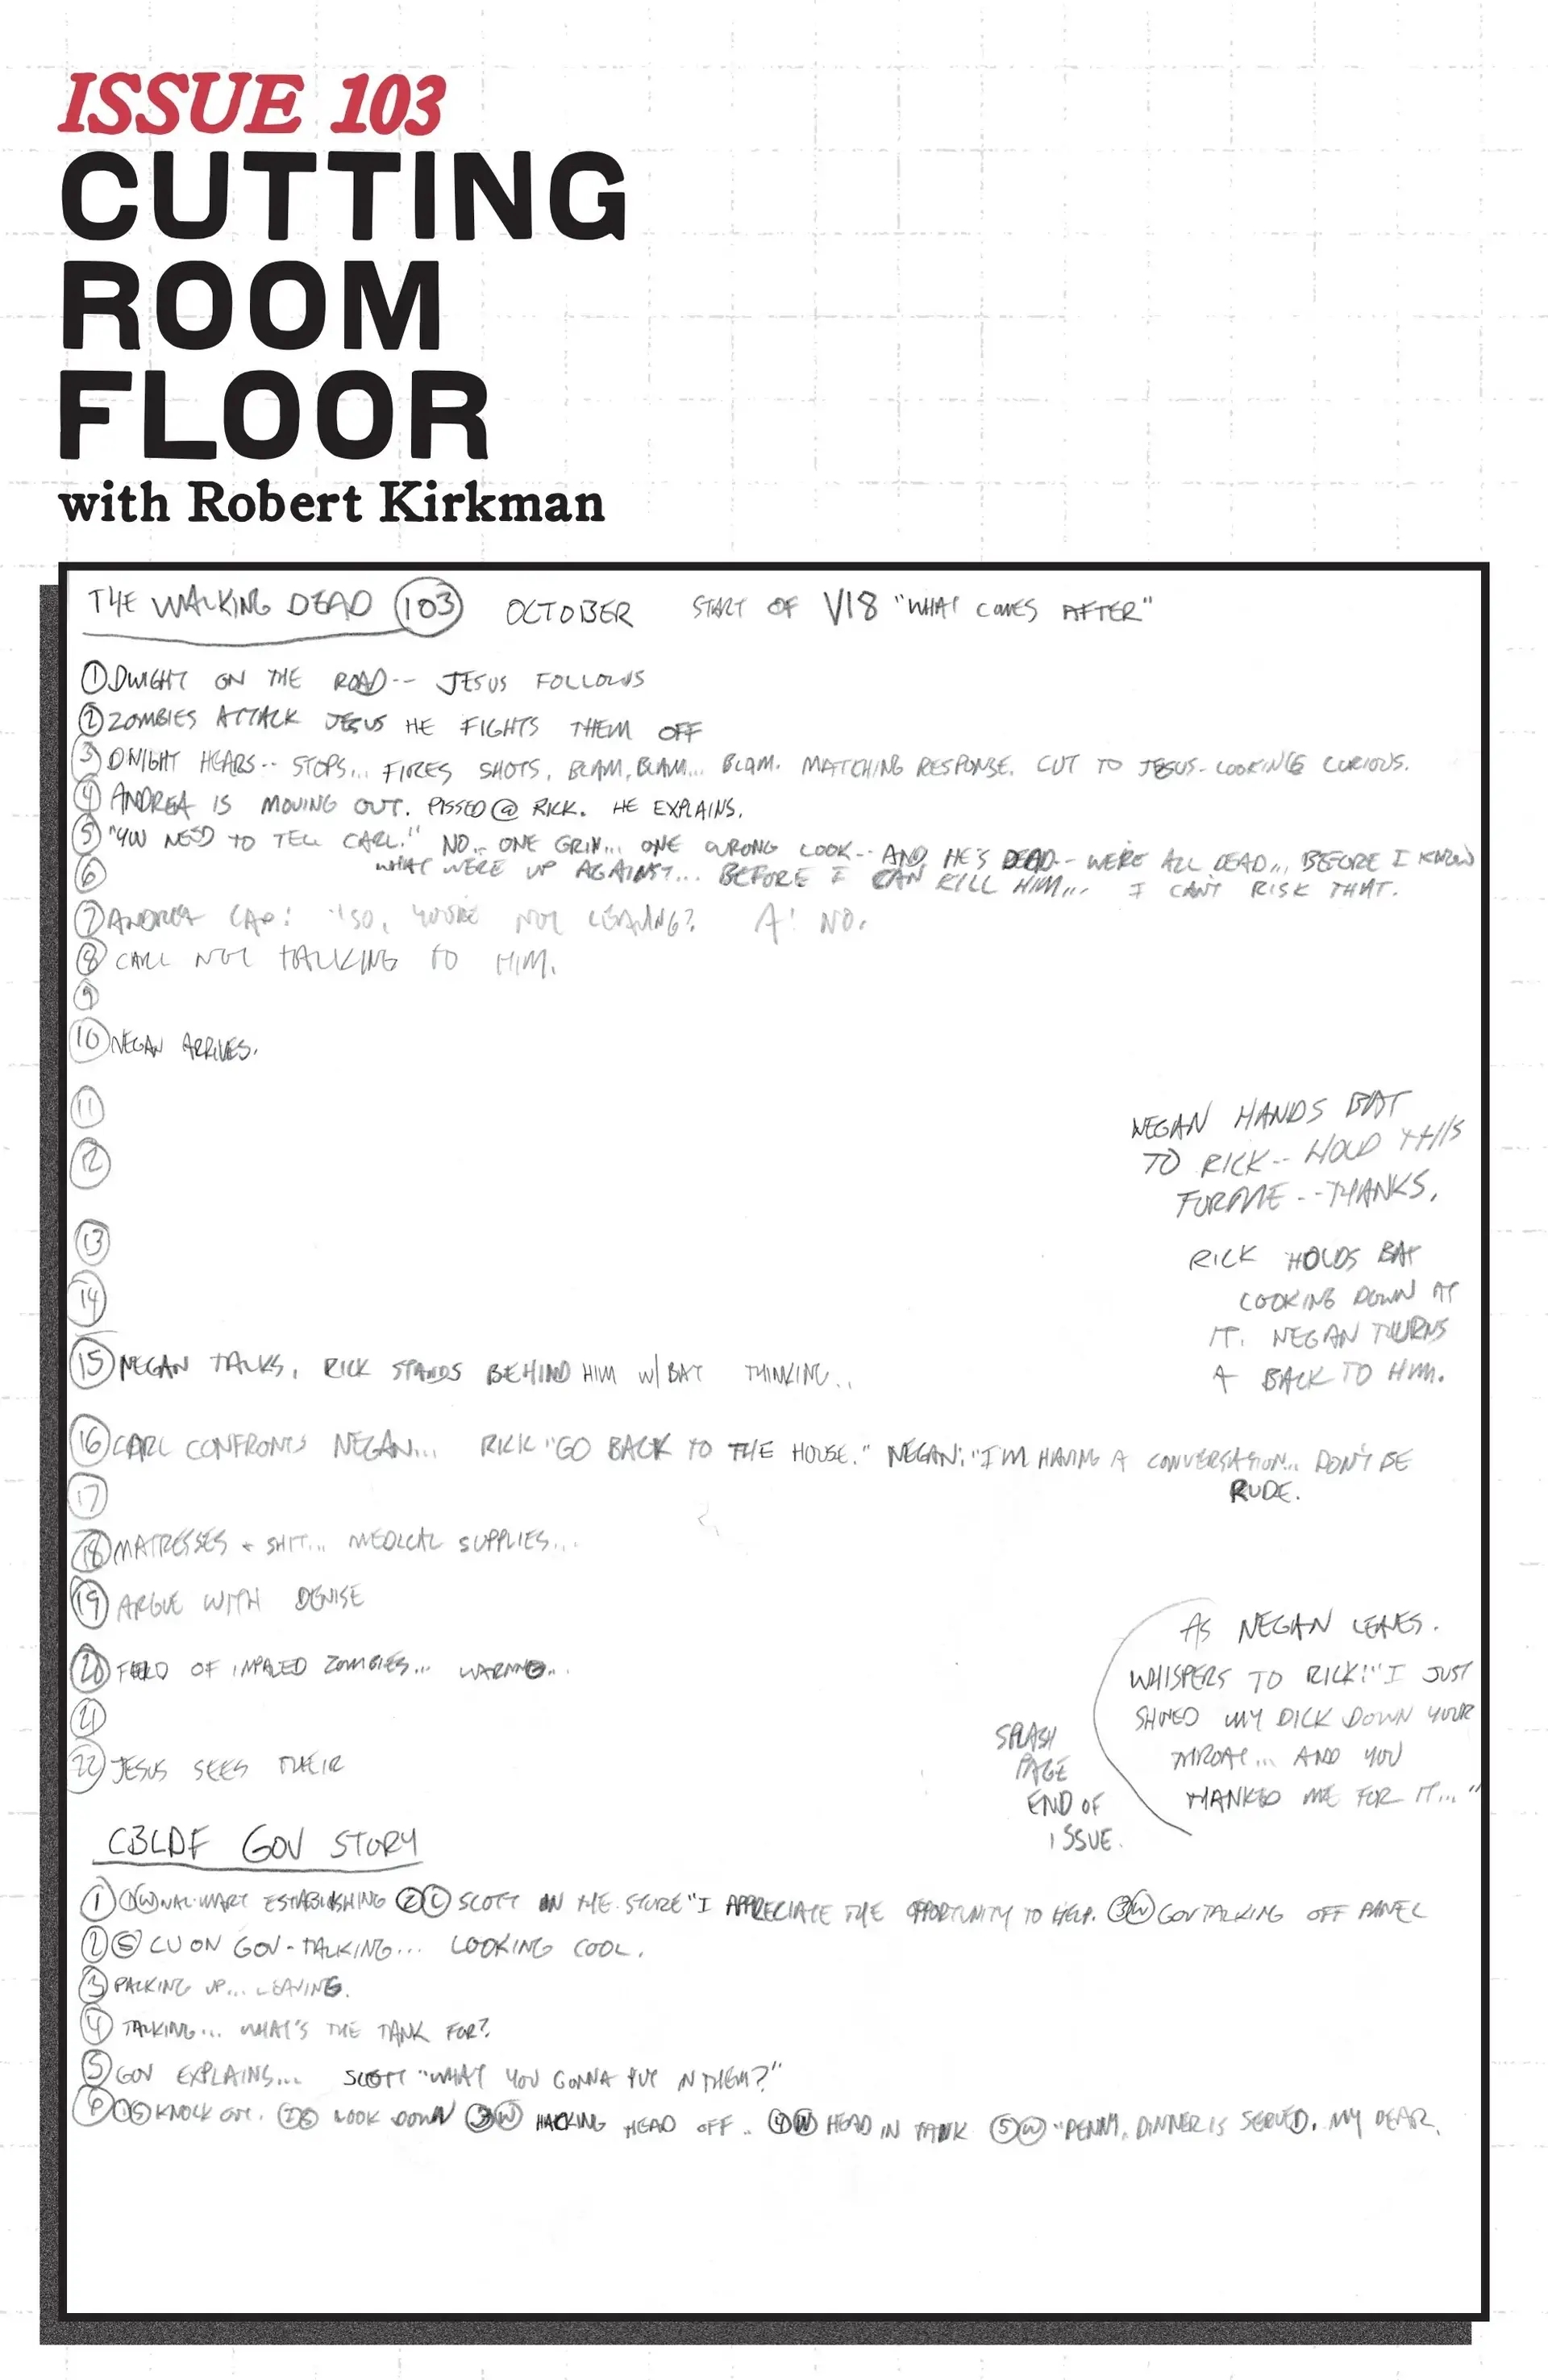 ISSUE 103
CUTTING
ROOM
FLOOR
with Robert Kirkman
THE WALKING DEAD 103 OCTOBER START OF V18 "WHAT COMES AFTER"
1 DWIGHT ON THE ROAD-- JESUS FOLLOWS
2 ZOMBIES ATTACK JESUS HE FIGHTS THEM OFF
3 DWIGHT HEARS-- STOPS... FIRES SHOTS. BLAM, BLAM... BLAM. MATCHING RESPONSE. CUT TO JESUS- LOOKING CURIOUS.
4 ANDREA IS MOVING OUT. PISSED @ RICK. HE EXPLAINS.
5 "YOU NEED TO TELL CARL." NO.. ONE GRIN... ONE WRONG LOOK-- AND HE'S DEAD-- WE'RE ALL DEAD... BEFORE I KNOW
6 WHAT WERE UP AGAINST... BEFORE I CAN KILL HIM... I CAN'T RISK THAT.
7 ANDREA CAP: "SO, YOU'RE NOT LEAVING? A: NO.
8 CARL NOT TALKING TO HIM.
9
10 NEGAN ARRIVES.
11
NEGAN HANDS BAT
12
TO RICK-- HOLD THIS
FOR ME-- THANKS.
13
RICK HOLDS BAT
14
LOOKING DOWN AT
IT. NEGAN TURNS
A BACK TO HIM.
15 NEGAN TALKS, RICK STANDS BEHIND HIM W/BAT THINKING..
16 CARL CONFRONTS NEGAN... RICK "GO BACK TO THE HOUSE." NEGAN: "I'M HAVING A CONVERSATION... DON'T BE
RUDE.
17
18 MATRESSES + SHIT... MEDICAL SUPPLIES...
19 ARGUE WITH DENISE
20 FIELD OF IMPALED ZOMBIES... WARNING..
21
22 JESUS SEES THEIR
AS NEGAN LEAVES.
WHISPERS TO RICK: "I JUST
SHOVED MY DICK DOWN YOUR
THROAT... AND YOU
THANKED ME FOR IT..."
SPLASH
PAGE
END OF
ISSUE.
CBLDF GOV STORY
1 1W WAL-MART ESTABLISHING 2C SCOTT IN THE STORE "I APPRECIATE THE OPPORTUNITY TO HELP. 3W GOV TALKING OFF PANEL
2 S CU ON GOV- TALKING... LOOKING COOL.
3 PACKING UP... LEAVING.
4 TALKING... WHAT'S THE TANK FOR?
5 GOV EXPLAINS... SCOTT "WHAT YOU GONNA PUT IN THEM?"
1S KNOCK OUT. 2S LOOK DOWN 3W HACKING HEAD OFF.. 4W HEAD IN TANK 5W "PENNY, DINNER IS SERVED, MY DEAR.